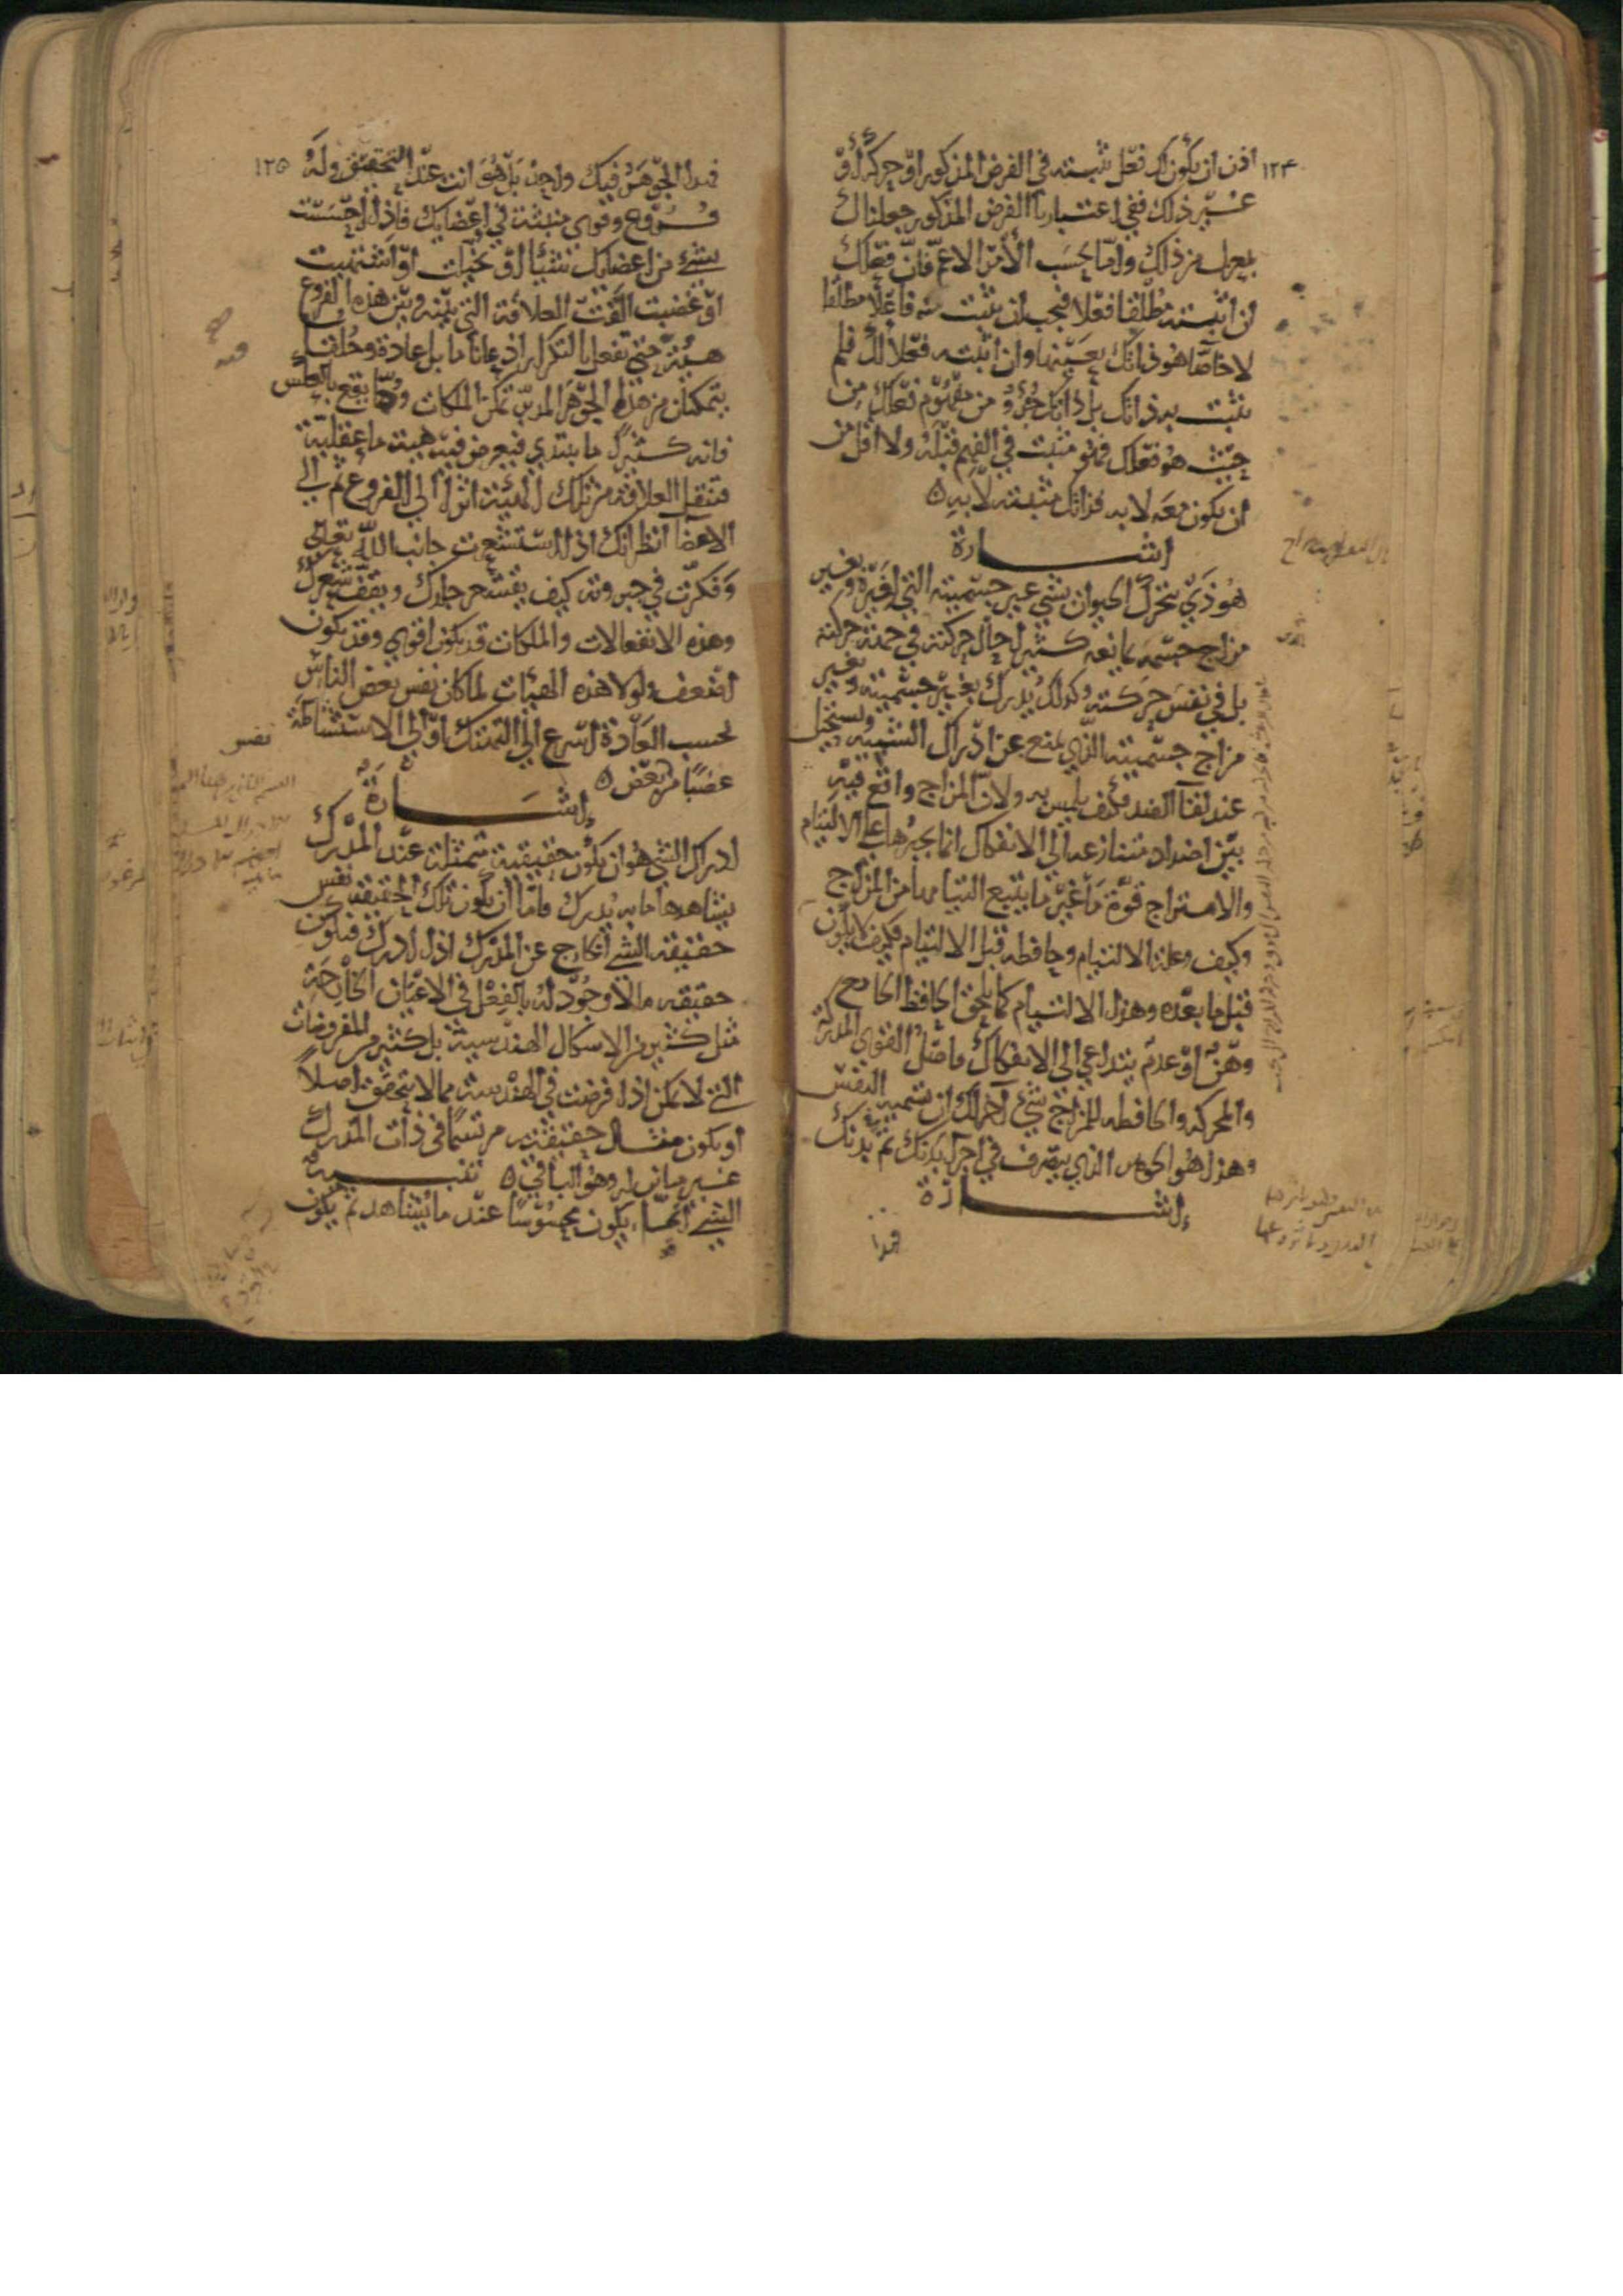 ١٢٤
اذن ان يكون لك فعل تثبته في الفرض المذكور او حركة او
غير ذلك ففي اعتبارنا الفرض المذكور جعلناك
بمعزل من ذلك واما بحسب الأمر الاعم فان فعلك
ان اثبته مطلقا فعلا فيجب ان تثبت منه فاعلا مطلقا
لا خاصا هو ذاتك بعينها وان اثبته فعلا لك فلم
تثبت به ذاتك بل ذاتك جزؤ من مفهوم فعلك من
حيث هو فعلك فهو مثبت في الفهم قبله ولا اقل من
ان يكون معه لا به فذاتك مثبتة لا به ه
اشارة
هو ذي يتحرك الحيوان بشي غير جسميته التي لغيره وبغير
مزاج جسمه يمانعه كثيرا حال حركته في جهة حركته
بل في نفس حركته وكذلك يدرك بغير جسميته وبغير
مزاج جسميته الذي يمنع عن ادراك الشبيه ويستحيل
عند لقآ الضد فكيف يلمس به ولان المزاج واقع فيه
بين اضداد متنازعة الى الانفكاك انما يجبرها على الالتيام
والامتزاج قوة ما غير ما يتبع التيامها من المزاج
وكيف وعلة الالتيام وحافظه قبل الالتيام فكيف لا يكون
قبل ما بعده وهذا الالتيام كما يلحق الحافظ الجامع
وهن او عدم يتداعى الى الانفكاك فاصل القوى المدركة
والمحركة والحافظه للمزاج شئ آخر لك ان تسميه النفس
وهذا هو الجوهر الذي يتصرف في اجزآ بدنك ثم في بدنك
اشارة
فهذا
١٢٥
فهذا الجوهر فيك واحد بل هو انت عند التحقيق وله
فروع وقوى منبثة في اعضايك فاذا احسست
بشئ من اعضايك شيئا او تخيلت او اشتهيت
او غضبت القت العلاقة التي بينه وبين هذه الفروع
هيئة فيه حتى تفعل بالتكرار اذعانا ما بل عادة وخلقا
يتمكنان من هذا الجوهر المدبر تمكن الملكات وربما يقع بالعكس
فانه كثيرا ما يبتدي فيعرض فيه هيئة ما عقلية
فتنقل العلاقة من تلك الهيئة اثرا الى الفروع ثم الى
الاعضآ انظر انك اذا استشعرت جانب الله تعالى
وفكرت في جبروته كيف يقشعر جلدك ويقف شعرك
وهذه الانفعالات والملكات قد يكون اقوى وقد يكون
اضعف ولولا هذه الهيئات لما كان نفس بعض الناس
بحسب العادة اسرع الى التهتك او الى الاستشاطة
غضبا من بعض ه
اشارة
ادراك الشي هو ان يكون حقيقته متمثلة عند المدرك
يشاهدها ما به يدرك فاما ان يكون تلك الحقيقة نفس
حقيقة الشئ الخارج عن المدرك اذا ادرك فيكون
حقيقة ما لا وجود له بالفعل في الاعيان الخارجة
مثل كثير من الاشكال الهندسية بل كثير من المفروضات
التي لا يمكن اذا فرضت في الهندسة مما لا يتحقق اصلا
او يكون مثال حقيقته مرتسما في ذات المدرك
غير مباين له وهو الباقي ه تنبيه
الشئ انما يكون محسوسا عند ما يشاهد ثم يكون